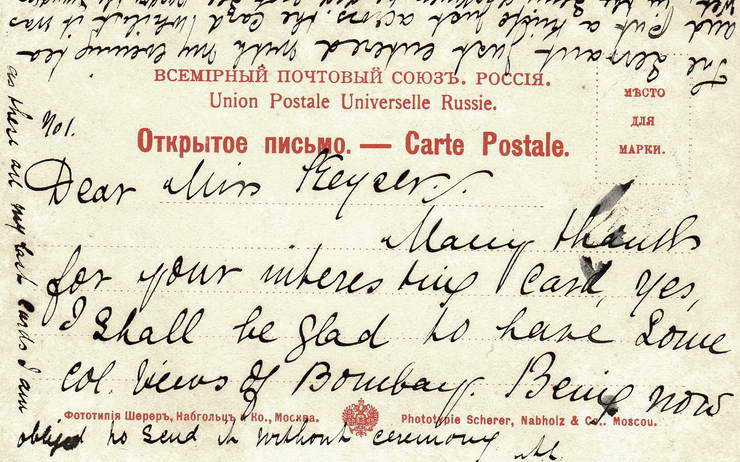 ВСЕМІРНЫЙ ПОЧТОВЫЙ СОЮЗЪ. РОССІЯ.
Union Postale Universelle Russie.
Открытое письмо. — Carte Postale.
МѢСТО
ДЛЯ
МАРКИ.
No 1.
Dear Miss Keyser.
Many thanks
for your interesting Card, Yes,
I shall be glad to have some
col. views of Bombay. Being now
Фототипія Шереръ, Набгольцъ и Ко., Москва.
Phototypie Scherer, Nabholz & Co. Moscou.
obliged to send it without ceremony
as there are my last cards I am
The servant just entered with my evening tea
and put a knife just across the card whilst it was
wet